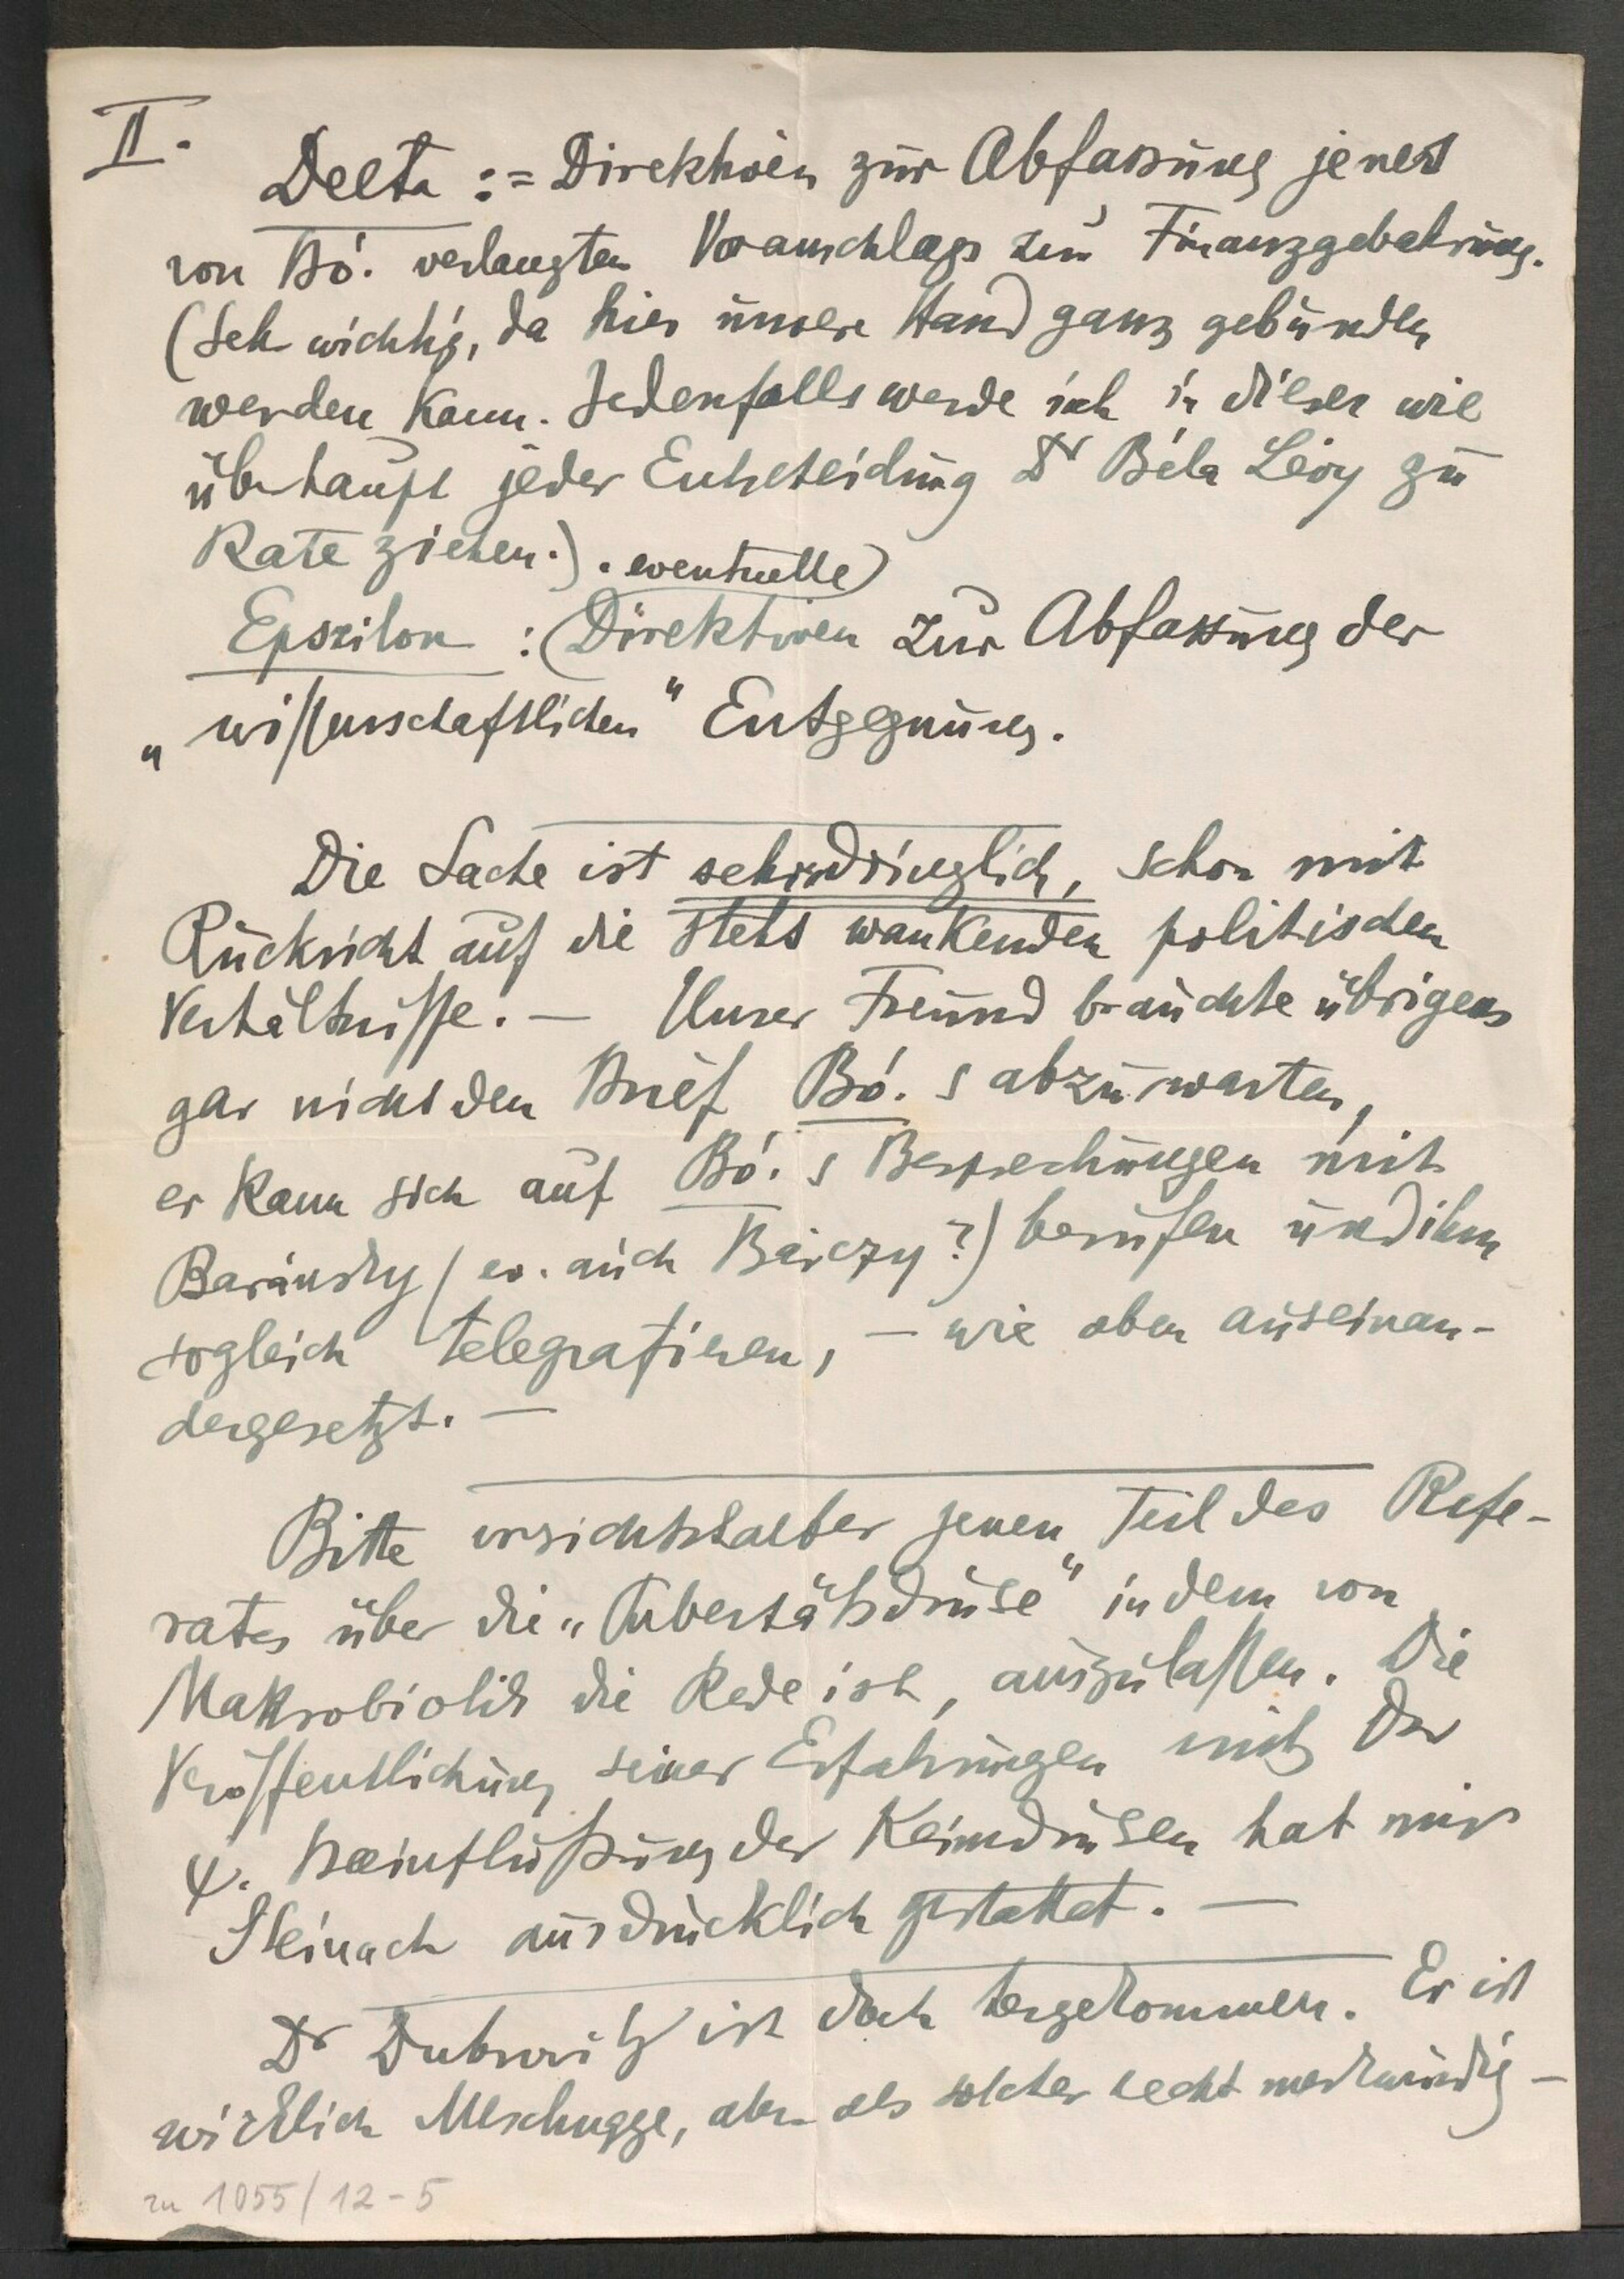 II.
Delta := Direktiven zur Abfassung jenes
von Bó. verlangten Voranschlags zur Finanzgebahrung.
(Sehr wichtig, da hier unsere Hand ganz gebunden
werden kann. Jedenfalls werde ich in dieser wie
überhaupt jeder Entscheidung Dr Béla Lévy zu
Rate ziehen.)
eventuelle
Epszilon : Direktiven zur Abfassung der
„wissenschaftlichen" Entgegnung.
Die Sache ist sehr dringlich, schon mit
Rücksicht auf die stets wankenden politischen
Verhältnisse. — Unser Freund brauchte übrigens
gar nicht den Brief Bó.s abzuwarten,
er kann sich auf Bó.s Besprechungen mit
Baránsky (ev. auch Bárczy?) berufen und ihm
sogleich telegrafieren, — wie oben auseinan-
dergesetzt. —
Bitte vorsichtshalber jenen Teil des Refe-
rates über die „Pubertätsdrüse" in dem von
Makrobiotik die Rede ist, auszulassen. Die
Veröffentlichung seiner Erfahrungen mit der
ψ. Beeinflußung der Keimdrüsen hat mir
Steinach ausdrücklich gestattet. —
Dr Dubowitz ist doch hergekommen. Er ist
wirklich Meschugge, aber als solcher recht merkwürdig —
zu 1055/12-5